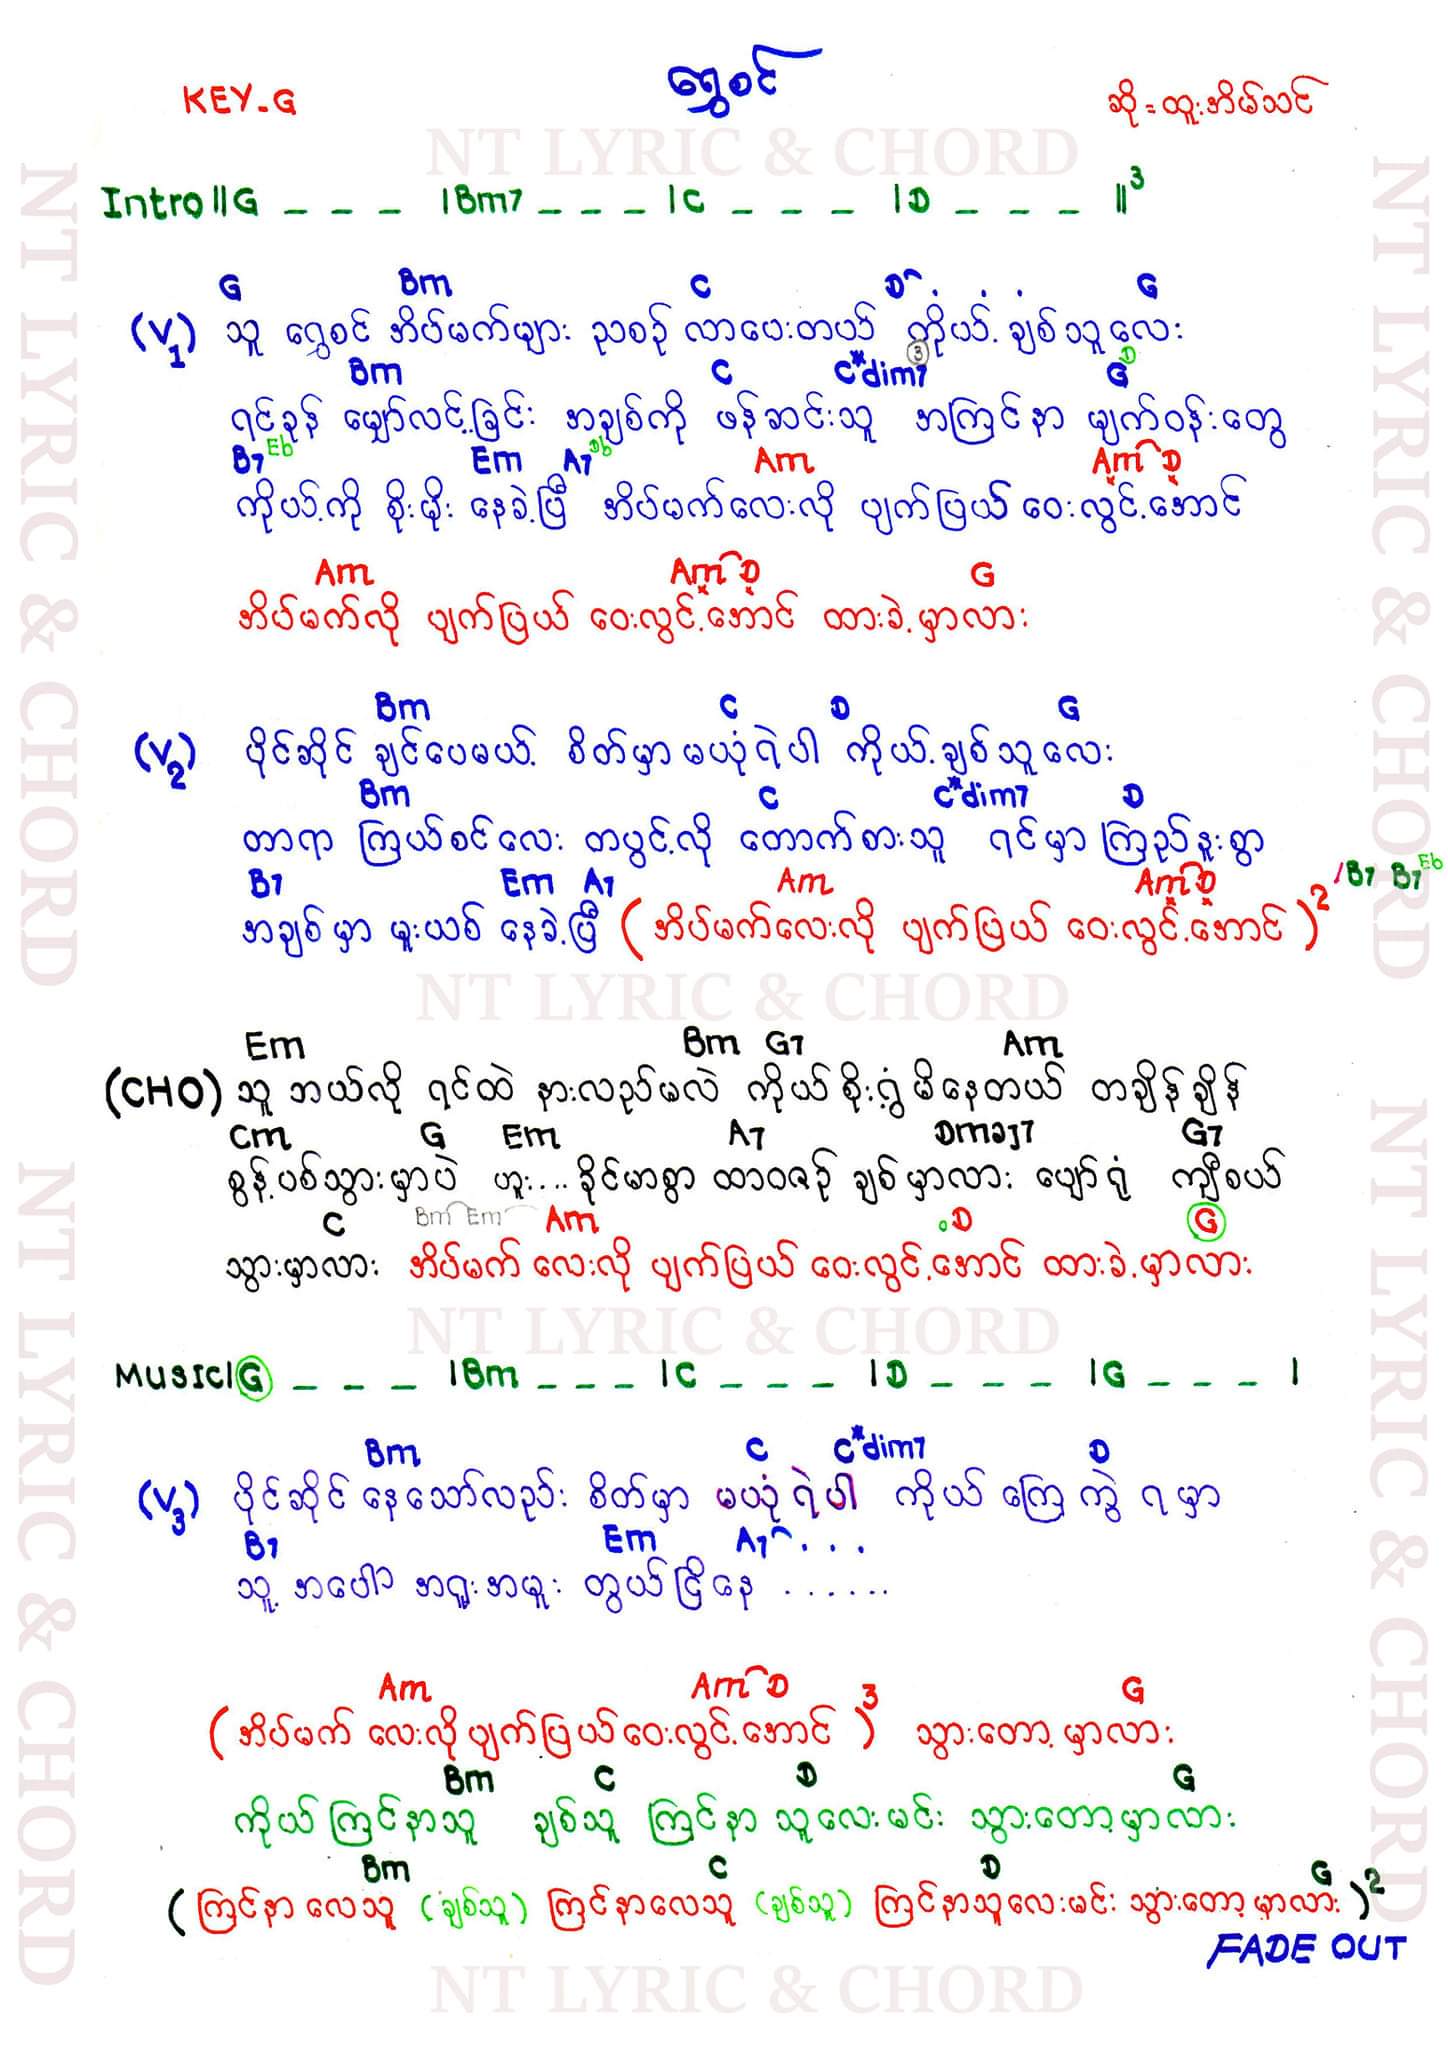 KEY-G
ရွှေစင်
ဆို = ထူးအိမ်သင်
NT LYRIC & CHORD
Intro || G _ _ _ | Bm7 _ _ _ | C _ _ _ | D _ _ _ || 3
G Bm C D G
(V1) သူ ရွှေစင် အိပ်မက်များ ညစဉ် လာပေးတယ် ကိုယ့် ချစ်သူလေး
Bm C C#dim7 3 G D
ရင်ခုန် မျှော်လင့်ခြင်း အချစ်ကို ဖန်ဆင်းသူ အကြင်နာ မျက်ဝန်းတွေ
B7 Eb Em A7 Db Am Am D
ကိုယ့်ကို စိုးမိုး နေခဲ့ပြီ အိပ်မက်လေးလို ပျက်ပြယ် ဝေးလွင့်အောင်
Am Am D G
အိပ်မက်လို ပျက်ပြယ် ဝေးလွင့်အောင် ထားခဲ့မှာလား
Bm C D G
(V2) ပိုင်ဆိုင် ချင်ပေမယ့် စိတ်မှာ မယုံရဲပါ ကိုယ့်ချစ်သူလေး
Bm C C#dim7 D
တာရာ ကြယ်စင်လေး တပွင့်လို တောက်စားသူ ရင်မှာ ကြည်နူးစွာ
B7 Em A7 Am Am D / B7 B7 Eb
အချစ်မှာ မူးယစ် နေခဲ့ပြီ (အိပ်မက်လေးလို ပျက်ပြယ် ဝေးလွင့်အောင်) 2
NT LYRIC & CHORD
Em Bm G7 Am
(CHO) သူ ဘယ်လို ရင်ထဲ နားလည်မလဲ ကိုယ်စိုးရွံ့မိနေတယ် တချိန်ချိန်
Cm G Em A7 Dmaj7 G7
စွန့်ပစ်သွားမှာပဲ ဟူး... ခိုင်မာစွာ ထာဝစဉ် ချစ်မှာလား ပျော်ရုံ ကျီစယ်
C Bm Em Am D G
သွားမှာလား အိပ်မက် လေးလို ပျက်ပြယ် ဝေးလွင့်အောင် ထားခဲ့မှာလား
NT LYRIC & CHORD
Music | G _ _ _ | Bm _ _ _ | C _ _ _ | D _ _ _ | G _ _ _ |
Bm C C#dim7 D
(V3) ပိုင်ဆိုင် နေသော်လည်း စိတ်မှာ မယုံရဲပါ ကိုယ် ကြေကွဲ ရမှာ
B7 Em A7 . . .
သူ့ အပေါ် အရူးအမူး တွယ်ငြိနေ ......
Am Am D G
(အိပ်မက် လေးလို ပျက်ပြယ်ဝေးလွင့်အောင်) 3 သွားတော့မှာလား
Bm C D G
ကိုယ် ကြင်နာသူ ချစ်သူ ကြင်နာ သူလေးမင်း သွားတော့မှာလား
Bm C D G
(ကြင်နာ လေသူ (ချစ်သူ) ကြင်နာလေသူ (ချစ်သူ) ကြင်နာသူလေးမင်း သွားတော့မှာလား) 2
FADE OUT
NT LYRIC & CHORD
NT LYRIC & CHORD
NT LYRIC & CHORD
NT LYRIC & CHORD
NT LYRIC & CHORD